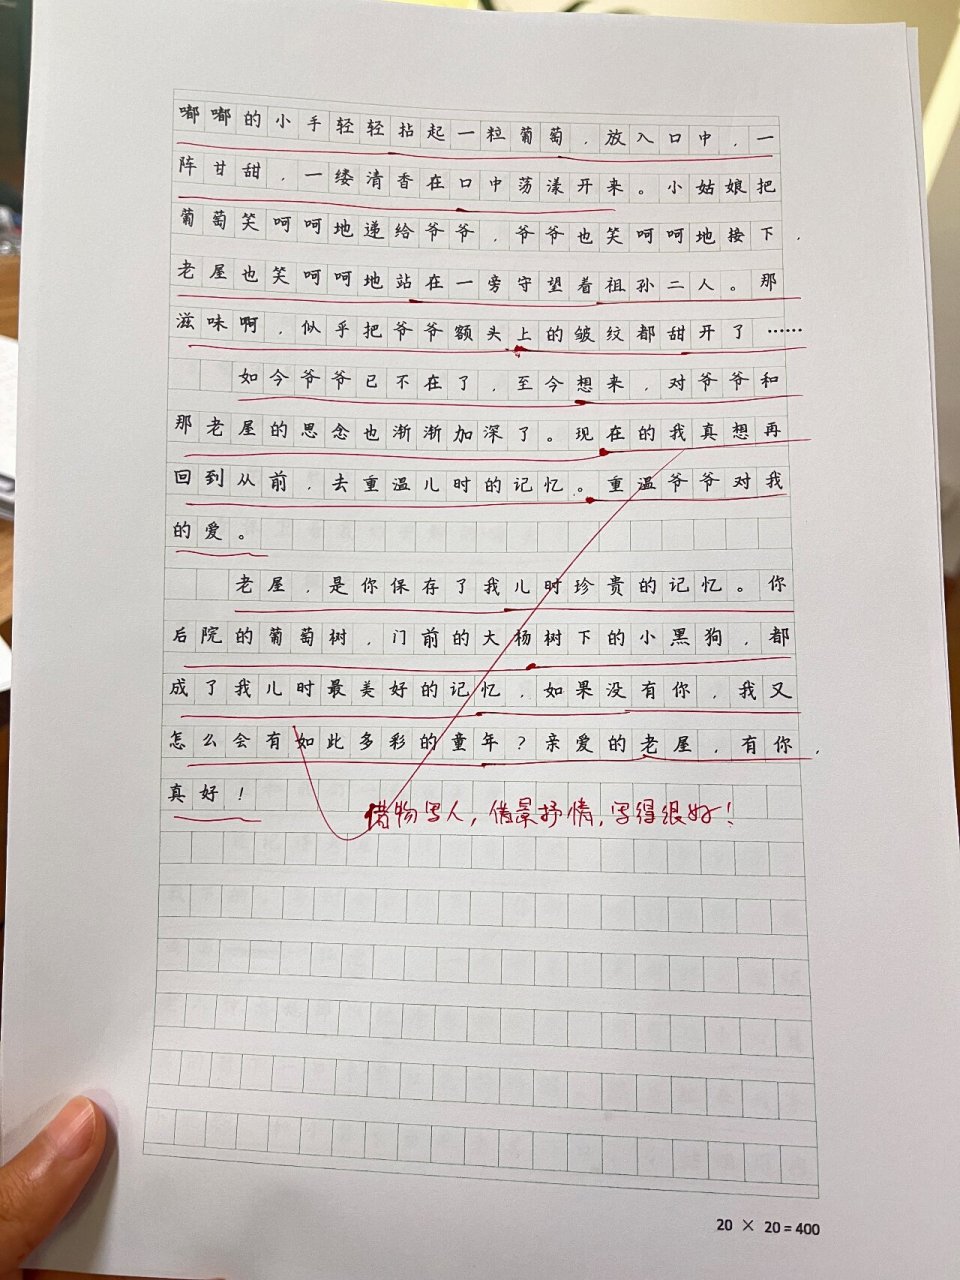 嘟嘟的小手轻轻拈起一粒葡萄，放入口中，一
阵甘甜，一缕清香在口中荡漾开来。小姑娘把
葡萄笑呵呵地递给爷爷，爷爷也笑呵呵地接下，
老屋也笑呵呵地站在一旁守望着祖孙二人。那
滋味啊，似乎把爷爷额头上的皱纹都甜开了……
如今爷爷已不在了，至今想来，对爷爷和
那老屋的思念也渐渐加深了。现在的我真想再
回到从前，去重温儿时的记忆。重温爷爷对我
的爱。
老屋，是你保存了我儿时珍贵的记忆。你
后院的葡萄树，门前的大杨树下的小黑狗，都
成了我儿时最美好的记忆，如果没有你，我又
怎么会有如此多彩的童年？亲爱的老屋，有你，
真好！
借物写人，借景抒情，写得很好！
20 × 20 = 400